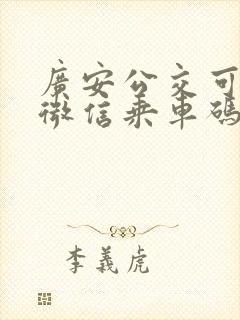 廣安公交可
微信乘車碼
李義虎